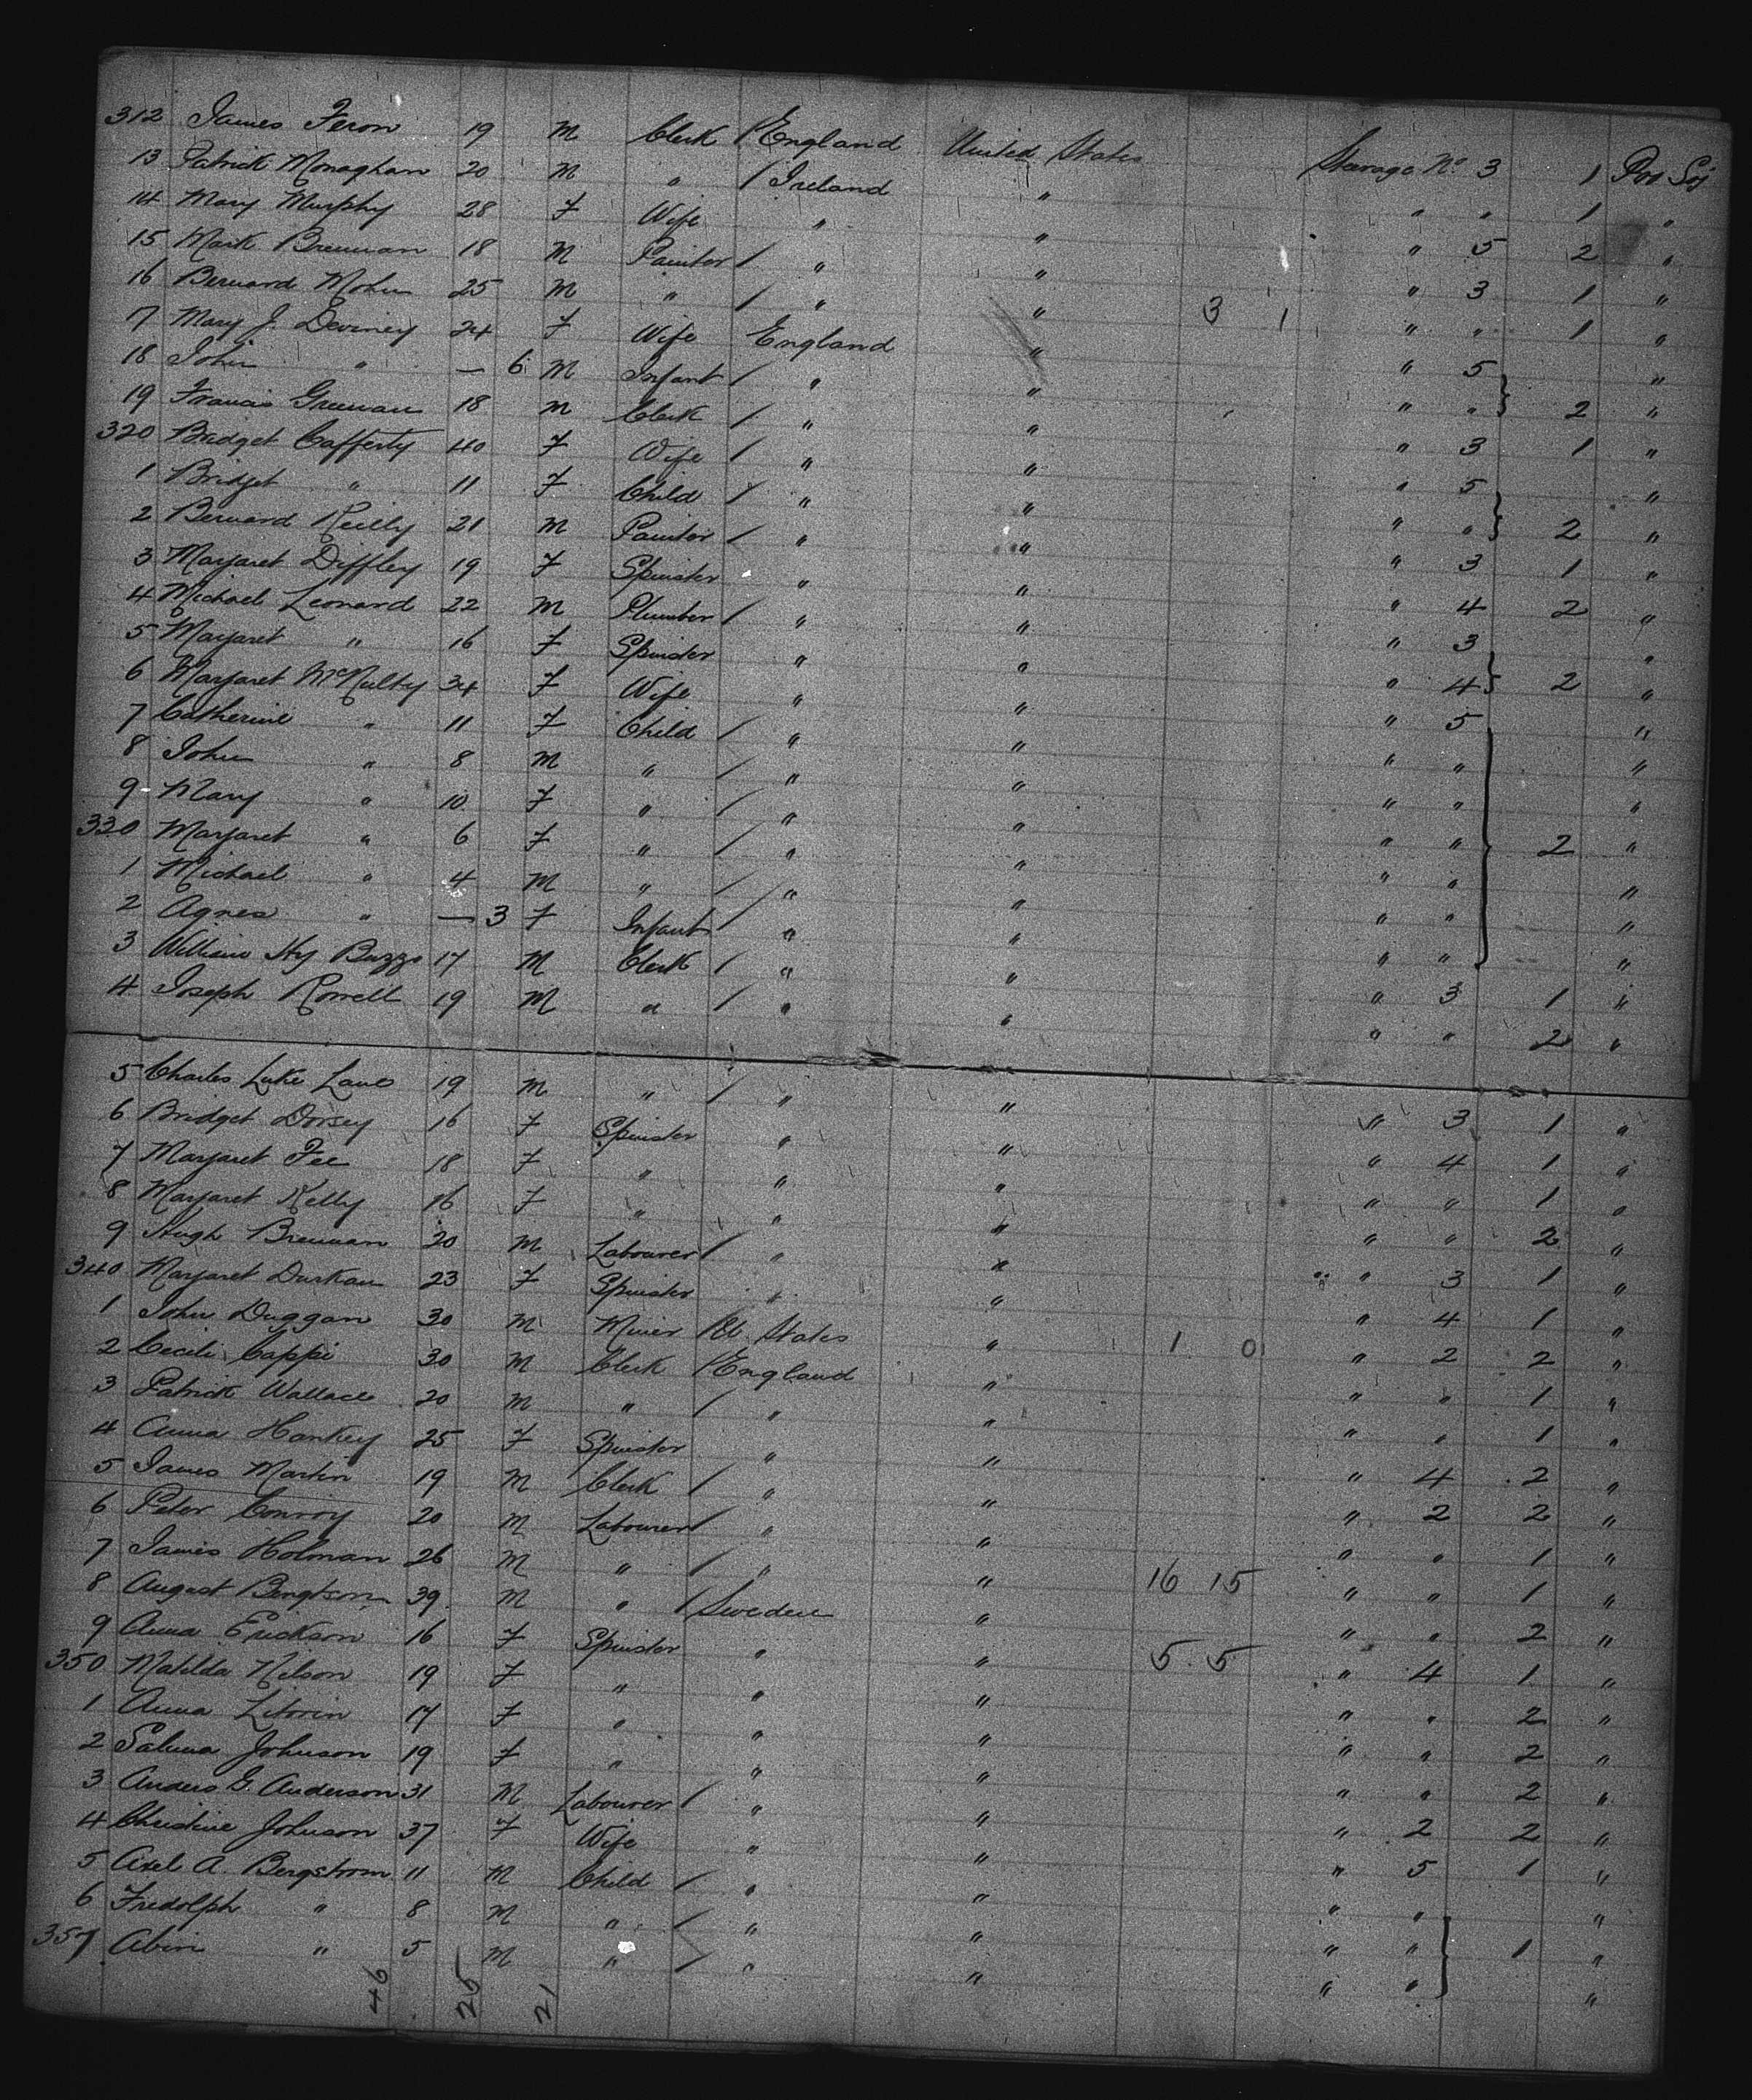 312 James Feron 19 M Clerk / England United States Steerage No. 3 1 Pro Soj
13 Patrick Monaghan 20 M " / Ireland " " " 1 "
14 Mary Murphy 28 F Wife " " " 5 2 "
15 Mark Brennan 18 M Painter / " " " 3 1 "
16 Bernard Mohn 25 M " / " " 3 1 " " 1 "
7 Mary J. Deviney 24 F Wife England " " 5 "
18 John " — 6 M Infant / " " " " } 2 "
19 Francis Greenan 18 M Clerk / " " " 3 1 "
320 Bridget Cafferty 40 F Wife / " " " 5 "
1 Bridget " 11 F Child / " " " " } 2 "
2 Bernard Reilly 21 M Painter / " " " 3 1 "
3 Margaret Diffley 19 F Spinster " " " 4 2 "
4 Michael Leonard 22 M Plumber / " " " 3 "
5 Margaret " 16 F Spinster " " " 4 } 2 "
6 Margaret McNulty 34 F Wife " " " 5 "
7 Catherine " 11 F Child / " " " " "
8 John " 8 M " / " " " " "
9 Mary " 10 F " / " " " " 2 "
330 Margaret " 6 F " / " " " " "
1 Michael " 4 M " / " " " " "
2 Agnes " — 3 F Infant / " " " " "
3 William Hy Buzzo 17 M Clerk / " " " 3 1 "
4 Joseph Rowell 19 M " / " " " " 2 "
5 Charles Luke Lane 19 M " / " " " 3 1 "
6 Bridget Dorsey 16 F Spinster " " " 4 1 "
7 Margaret Fee 18 F " " " " " 1 "
8 Margaret Kelly 16 F " " " " " 2 "
9 Hugh Brennan 20 M Labourer / " " " 3 1 "
340 Margaret Durkan 23 F Spinster " " " 4 1 "
1 John Duggan 30 M Miner / U. States " 1 0 " 2 2 "
2 Cecili Cappi 30 M Clerk / England " " " 1 "
3 Patrick Wallace 20 M " / " " " " 1 "
4 Anna Hankey 25 F Spinster " " " 4 2 "
5 James Martin 19 M Clerk / " " " 2 2 "
6 Peter Conroy 20 M Labourer / " " " " 1 "
7 James Holman 26 M " / " " 16 15 " " 1 "
8 August Bengtson 39 M " / Sweden " " " 2 "
9 Anna Erickson 16 F Spinster " " 5 5 " 4 1 "
350 Matilda Nilson 19 F " " " " " 2 "
1 Anna Litorin 17 F " " " " " 2 "
2 Salma Johnson 19 F " " " " " 2 "
3 Anders G. Anderson 31 M Labourer / " " " 2 2 "
4 Christine Johnson 37 F Wife " " " 5 1 "
5 Axel A. Bergstrom 11 M Child / " " " " "
6 Fridolph " 8 M " / " " " " } 1 "
357 Abin " 5 M " / " " " " "
46 25 21